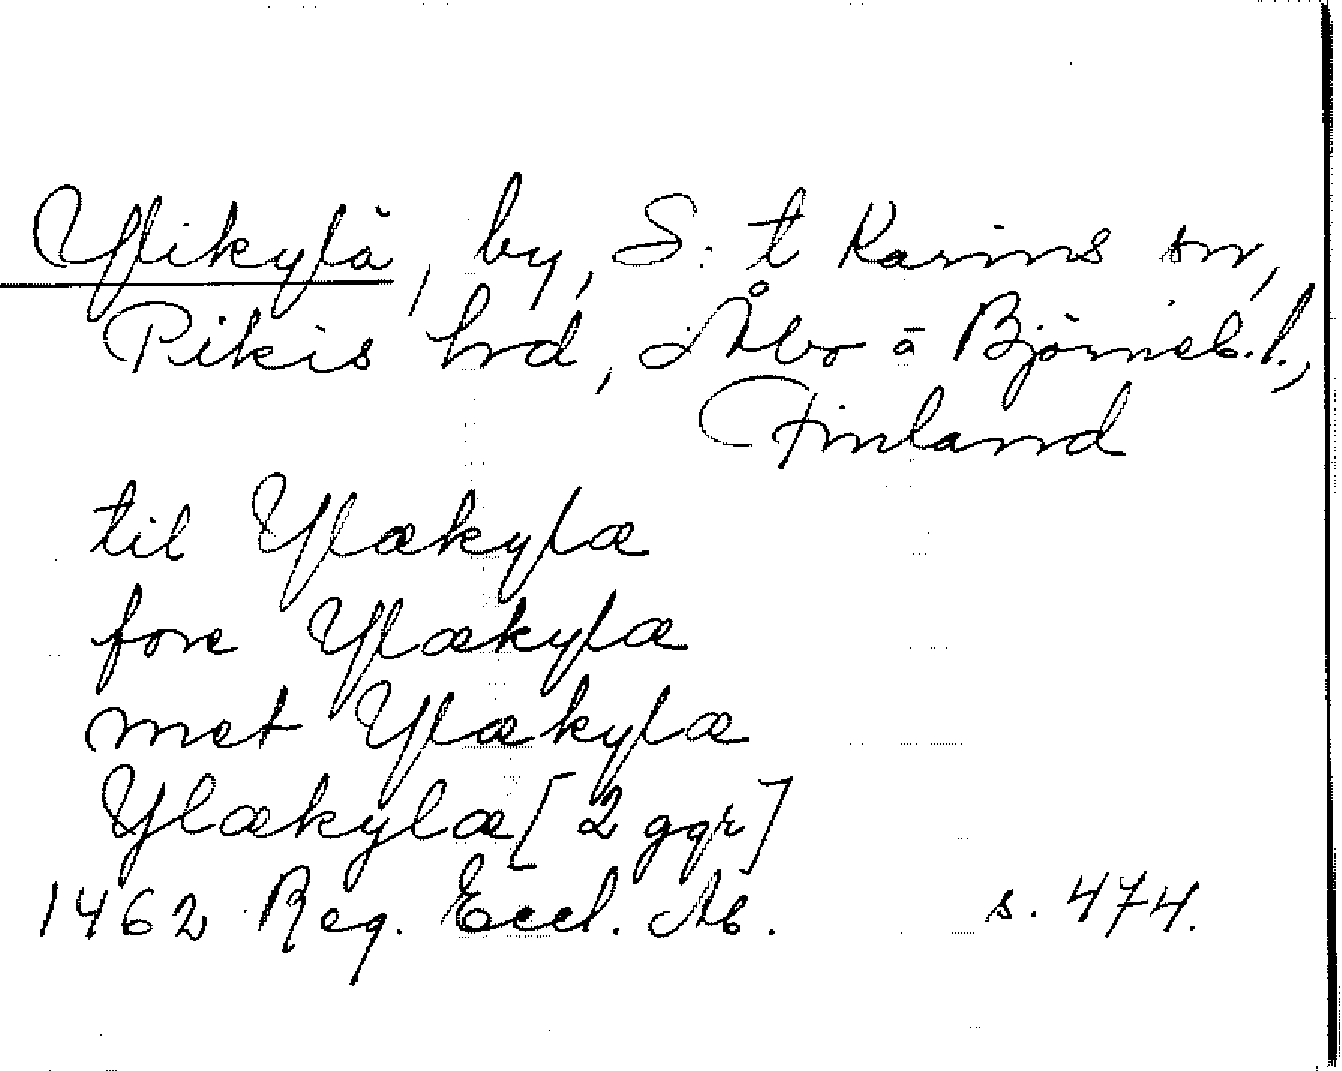 Ylikylä, by, S:t Karins sn,
Pikis hrd, Åbo o Björneb.l.,
Finland
til Ylækylæ
fore Ylækylæ
met Ylækylæ
Ylækylæ [2 ggr]
1462 Reg. Eccl. Ab. s. 474.